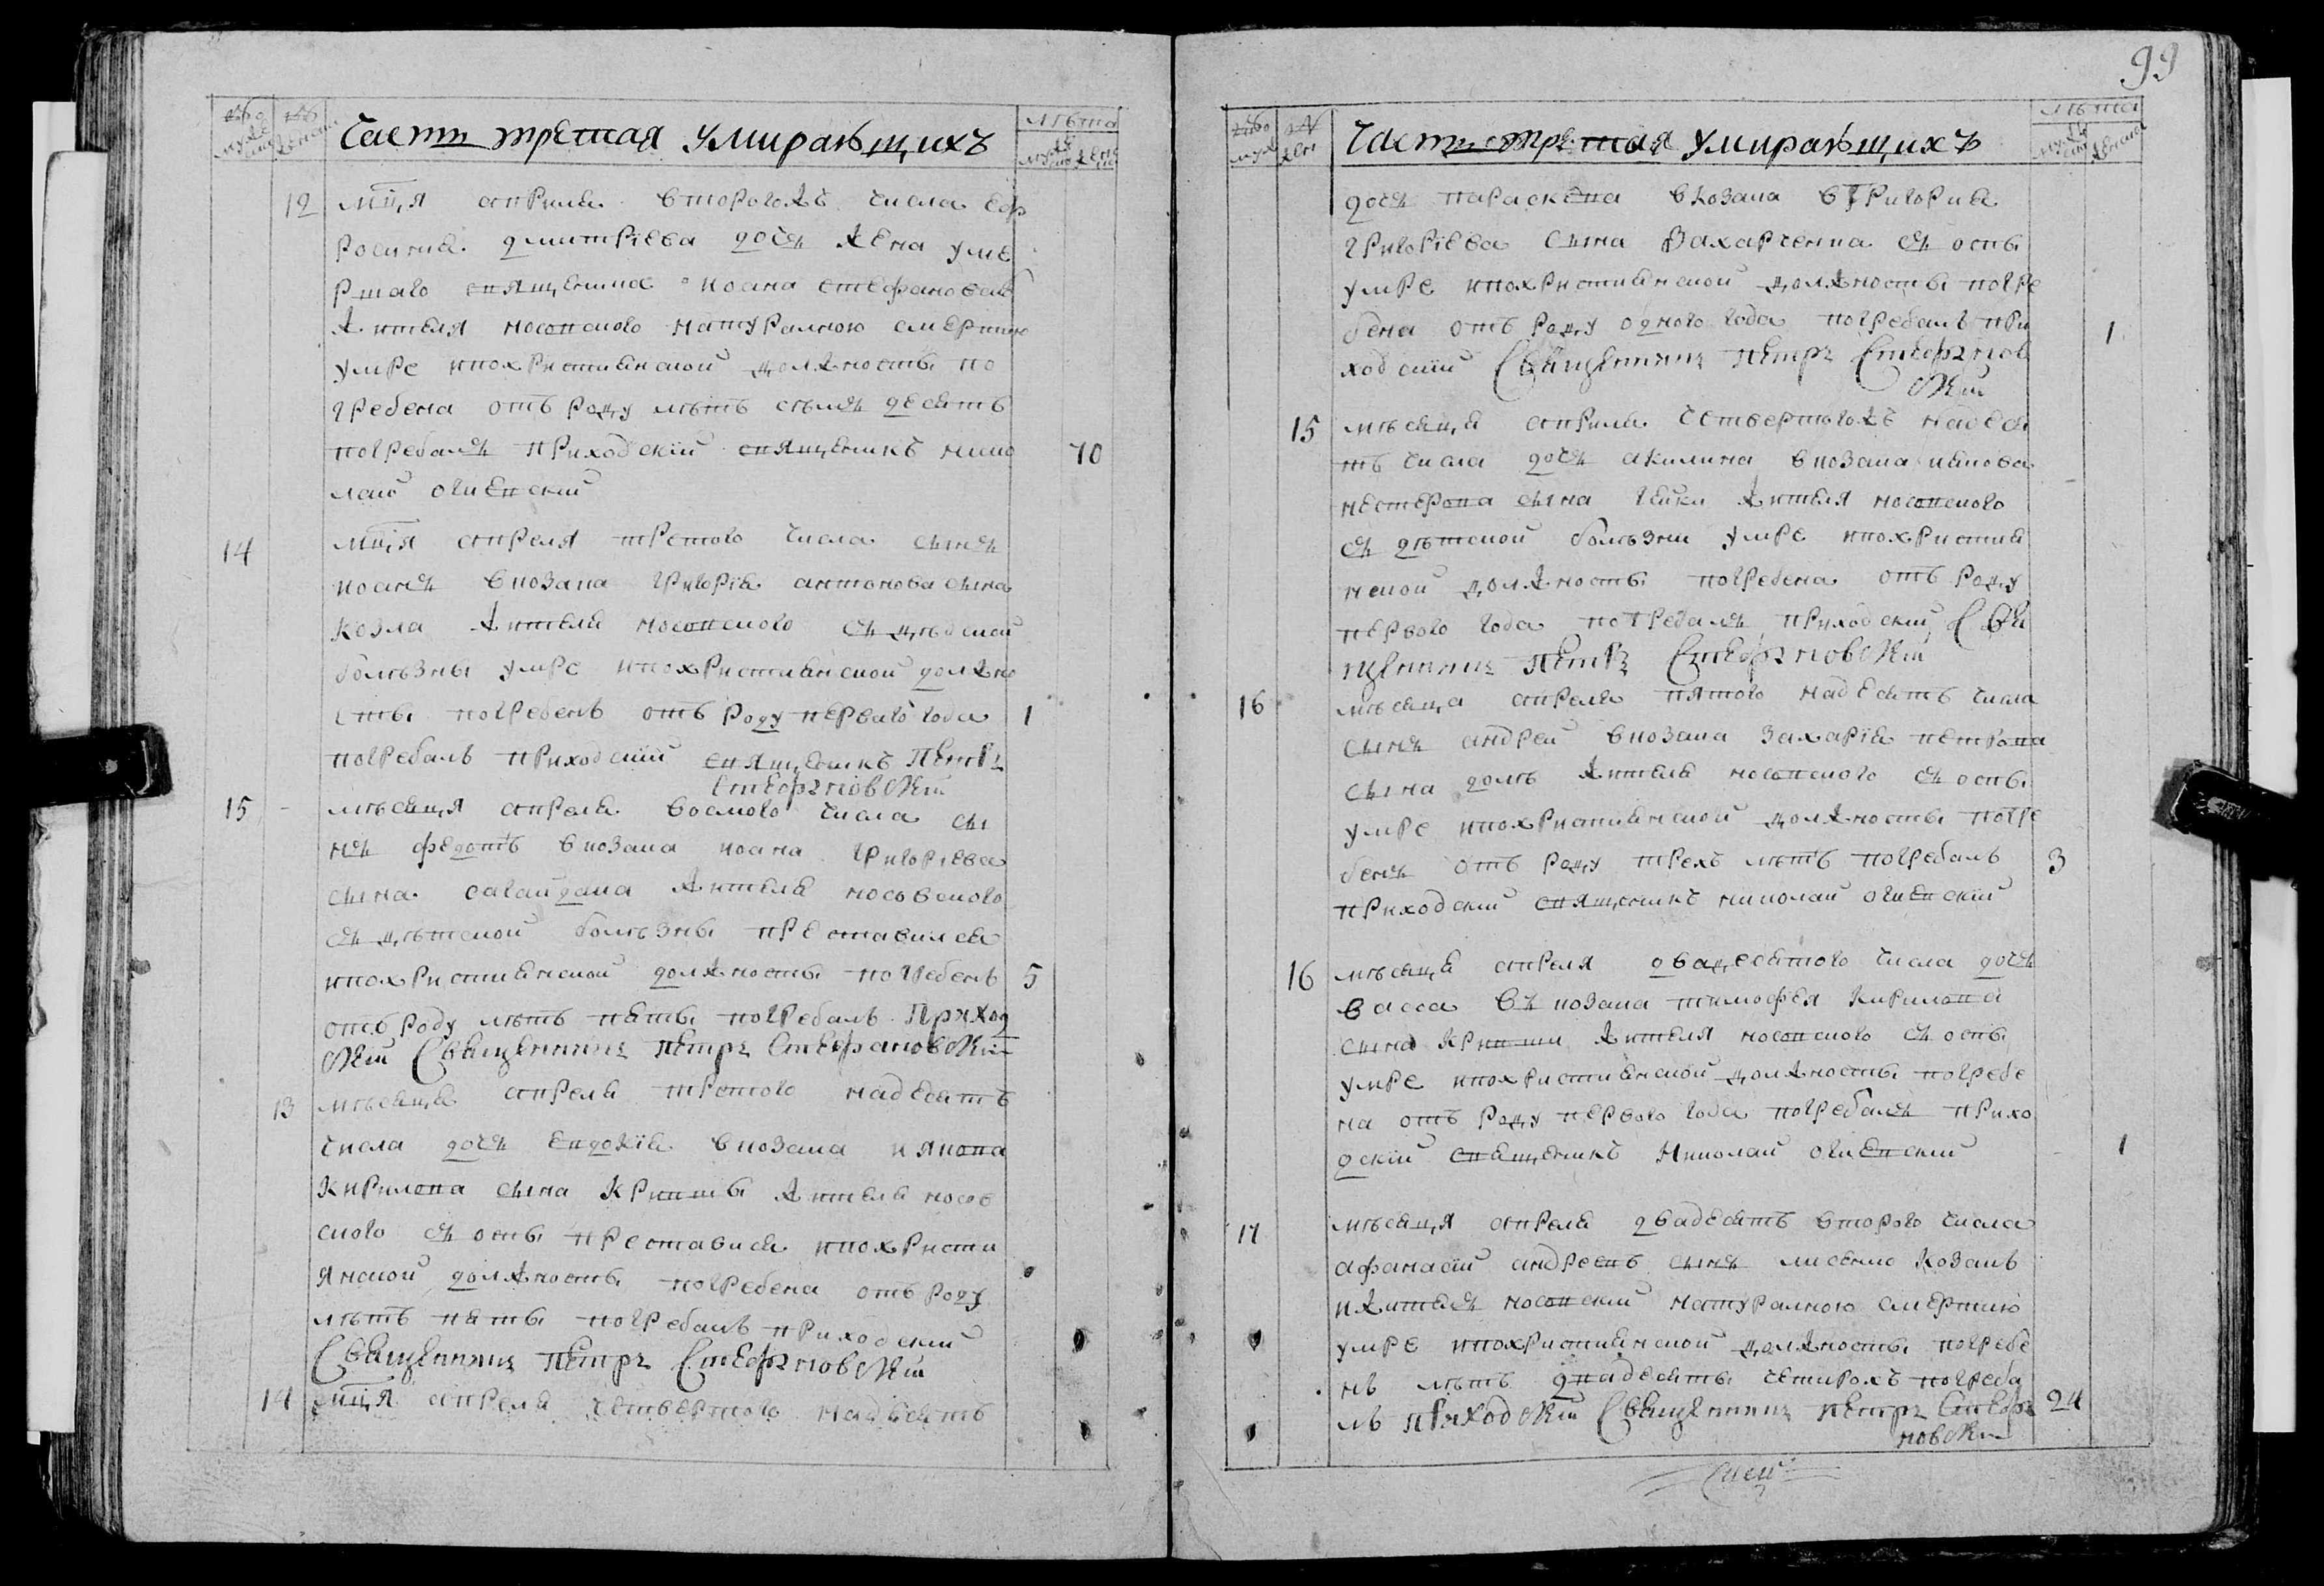 99
Часть третая Умираюшихъ
лѣта
12 мц҃я априля второгожъ числа Евф
росиния дмитріева дочъ жена уме
ршаго священика иоана стефановъ
жителя носовского натуралною смертию
умре ипохристиянской должносты по
гребена отъ роду лѣтъ съмъ десятъ
погребалъ приходскій священикъ нико 70
лай огиевский
14 мц҃я апреля третого числа сынъ
иоанъ в козака григорія антонова сына
козла жителя носовского съ дѣцкой
болѣзны умре ипохристиянской должно
сты погребенъ отъ роду первого года 1
погребалъ приходский священикъ Петръ
Стефановский
15 мѣсяця апреля восмого числа сы
нъ федотъ в козака иоана григориева
сына сагайдака жителя носовского
съ дѣтской болѣзны преставился
ипохристиянской должносты погребенъ 5
отъ роду лѣтъ пяты погребалъ Приход
ский Священникъ Петръ Стефановский
13 мѣсяця апреля третого надесятъ
числа дочъ Евдокія в козака иякова
Кирилова сына Кривши жителя носов
ского съ оспы преставися ипохристи
янской должносты погребена отъ роду
лѣтъ пяты погребалъ приходский
Священникъ Петръ Стефановский
14 мц҃я апреля четвертого надесятъ
99
Часть третая Умираюшихъ
лѣта
дочъ параскева в козака в григория
григоріева сына Захарченка съ оспы
умре ипохристиянской должносты погре
бена отъ роду одного года погребалъ при 1
ходский Священникъ Петръ Стефанов
ский
15 мѣсяця априля четвертогожъ надеся
тъ числа дочъ акилина в козака иякова
нестерова сына гейки жителя носовского
съ дѣтской болѣзни умре ипохристия
нской должносты погребена отъ роду
первого года погребалъ приходский Свя
щенникъ Петръ Стефановский
16 мѣсяца апреля пятого надесятъ числа
сынъ андрей в козака захарія петрова
сына долъ жителя носовского съ оспы
умре ипохристиянской должносты погре
бенъ отъ роду трехъ лѣтъ погребалъ 3
приходский священикъ николай огиевский
16 мѣсяця апреля двадесятого числа дочъ
васса въ козака тимофея Кирилова
сына Кривши жителя носовского съ оспы
умре ипохристиянской должносты погребе
на отъ роду первого года погребалъ прихо
дский священикъ Николай огиевский 1
17 мѣсяця апреля двадесятъ второго числа
афанасий андреевъ сынъ лисенко козакъ
ижителъ носовский натуралною смертию
умре ипохристиянской должносты погребе
нъ лѣтъ двадесяты четирохъ погреба
лъ приходский Священникъ Петръ Стефа 24
новский